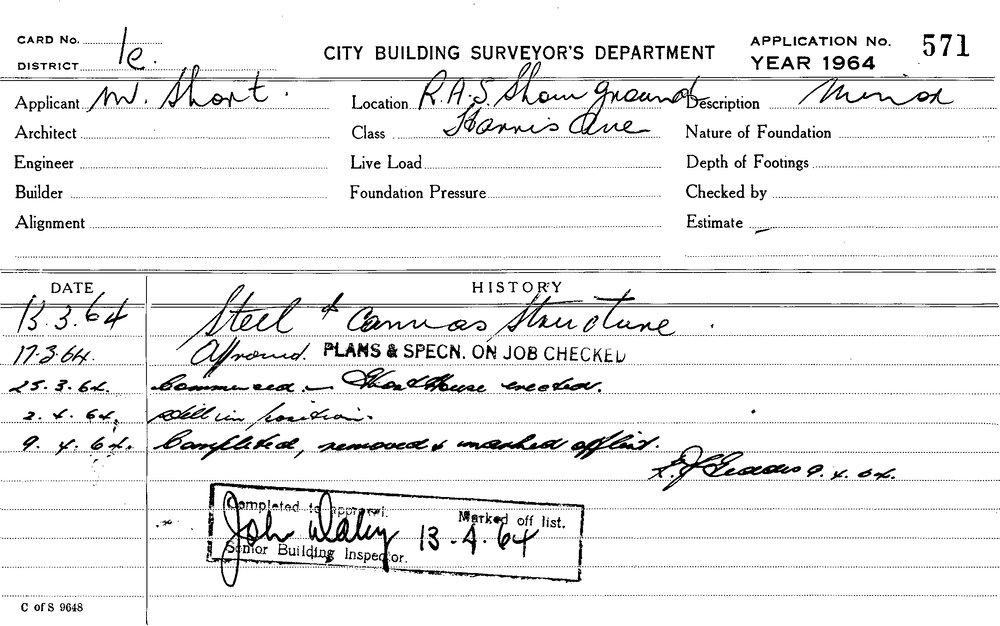 CARD No.
DISTRICT 1e.
CITY BUILDING SURVEYOR'S DEPARTMENT
APPLICATION No. 571
YEAR 1964
Applicant W. Short. Location R.A.S. Show ground Description Minor
Architect Class Harris Ave Nature of Foundation
Engineer Live Load Depth of Footings
Builder Foundation Pressure Checked by
Alignment Estimate
DATE HISTORY
13.3.64 Steel & Canvas Structure.
17.3.64. Approved. PLANS & SPECN. ON JOB CHECKED
25.3.64. Commenced. - Ghost House erected.
2.4.64. Still in position.
9.4.64. Completed, removed & marked off list.
9.4.64.
Completed to approval. Marked off list.
John Daley 13-4-64
Senior Building Inspector.
C of S 9648